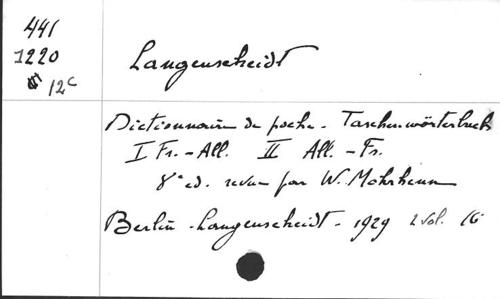 441
1220
12c
Langenscheidt
Dictionnaire de poche - Taschenwörterbuch
I Fr. - All. II All. - Fr.
8e ed. revue par W. Mohrhenn
Berlin - Langenscheidt - 1929 2 vol. 16°